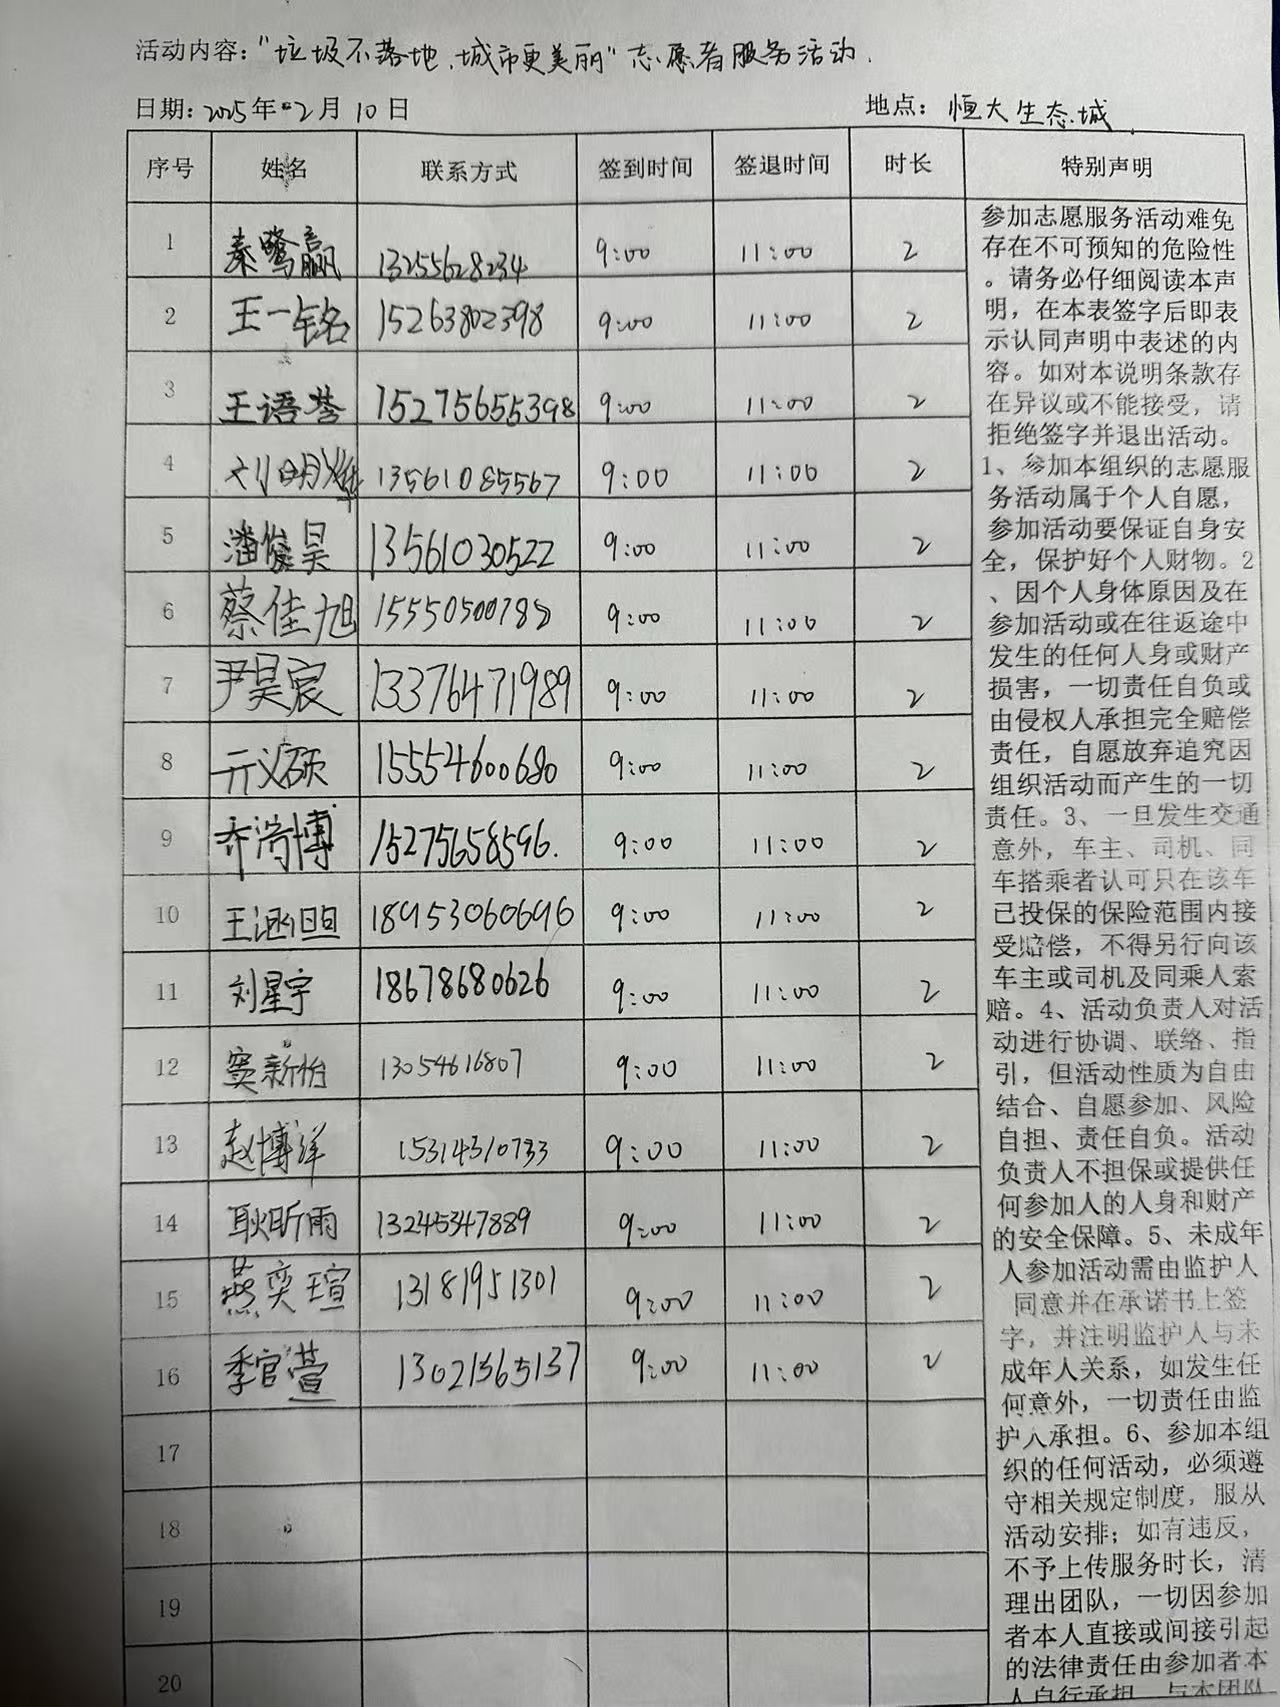 活动内容:"垃圾不落地、城市更美丽"志愿者服务活动.
日期: 2025年 2月 10日 地点: 恒大生态城
序号 姓名 联系方式 签到时间 签退时间 时长 特别声明
1 秦鹭赢 13255628234 9:00 11:00 2
2 王一铭 15263802398 9:00 11:00 2
3 王语 15275655398 9:00 11:00 2
4 刘明 13561085567 9:00 11:00 2
5 潘俊昊 13561030522 9:00 11:00 2
6 蔡佳旭 15550500788 9:00 11:00 2
7 尹昊宸 13376471989 9:00 11:00 2
8 亓义硕 15554600680 9:00 11:00 2
9 乔博 15275658596. 9:00 11:00 2
10 王 18953060696 9:00 11:00 2
11 刘星宇 18678680626 9:00 11:00 2
12 窦新怡 13054616807 9:00 11:00 2
13 赵博洋 15314310733 9:00 11:00 2
14 耿昕雨 13245347889 9:00 11:00 2
15 燕奕瑄 13181951301 9:00 11:00 2
16 季官萱 13021565137 9:00 11:00 2
17
18
19
20
参加志愿服务活动难免
存在不可预知的危险性
。请务必仔细阅读本声
明，在本表签字后即表
示认同声明中表述的内
容。如对本说明条款存
在异议或不能接受，请
拒绝签字并退出活动。
1、参加本组织的志愿服
务活动属于个人自愿，
参加活动要保证自身安
全，保护好个人财物。2
、因个人身体原因及在
参加活动或在往返途中
发生的任何人身或财产
损害，一切责任自负或
由侵权人承担完全赔偿
责任，自愿放弃追究因
组织活动而产生的一切
责任。3、一旦发生交通
意外，车主、司机、同
车搭乘者认可只在该车
已投保的保险范围内接
受赔偿，不得另行向该
车主或司机及同乘人索
赔。4、活动负责人对活
动进行协调、联络、指
引，但活动性质为自由
结合、自愿参加、风险
自担、责任自负。活动
负责人不担保或提供任
何参加人的人身和财产
的安全保障。5、未成年
人参加活动需由监护人
同意并在承诺书上签
字，并注明监护人与未
成年人关系，如发生任
何意外，一切责任由监
护人承担。6、参加本组
织的任何活动，必须遵
守相关规定制度，服从
活动安排；如有违反，
不予上传服务时长，清
理出团队，一切因参加
者本人直接或间接引起
的法律责任由参加者本
人自行承担，与本团队